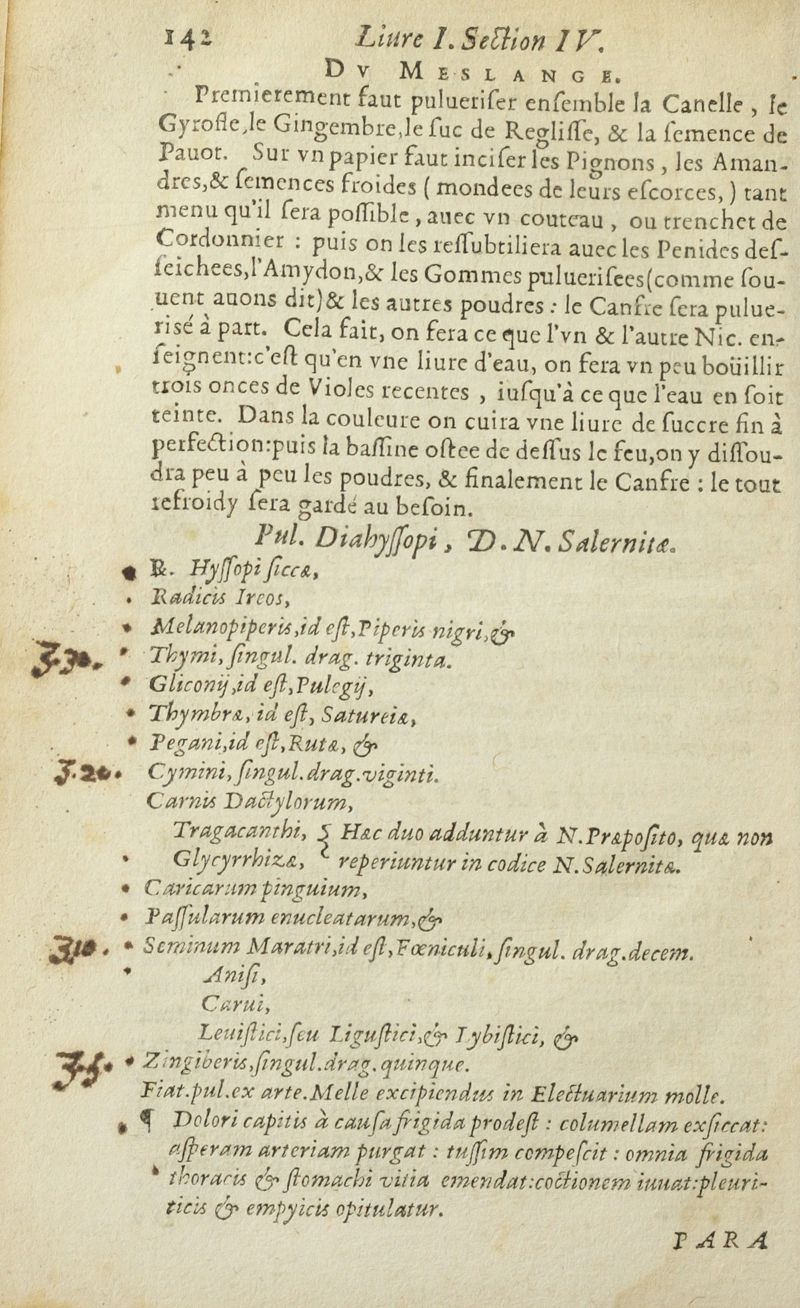 142 Liure I. Section IV.
Dv Meslange.
Premierement faut puluerifer enſemble la Canelle , le
Gyrofle,le Gingembre,le ſuc de Regliſſe, & la ſemence de
Pauot. Sur vn papier faut inciſer les Pignons , les Aman-
dres,& ſemences froides ( mondees de leurs eſcorces, ) tant
menu qu'il ſera poſſible , auec vn couteau , ou trenchet de
Cordonnier : puis on les reſſubtiliera auec les Penides deſ-
ſeichees,l'Amydon,& les Gommes pulueriſees(comme ſou-
uent auons dit)& les autres poudres : le Canfre ſera pulue-
risé à part. Cela fait, on fera ce que l'vn & l'autre Nic. en-
ſeignent:c'eſt qu'en vne liure d'eau, on fera vn peu boüillir
trois onces de Violes recentes , iuſqu'à ce que l'eau en ſoit
teinte. Dans la couleure on cuira vne liure de ſuccre fin à
perfection:puis la baſſine oſtee de deſſus le feu,on y diſſou-
dra peu à peu les poudres, & finalement le Canfre : le tout
refroidy ſera gardé au beſoin.
Pul. Diahyſſopi, D. N. Salernitæ.
℞. Hyſſopi ſiccæ,
Radicis Ireos,
Melanopiperis,id eſt,Piperis nigri,&
ʒ30. Thymi, ſingul. drag. triginta.
Gliconij,id eſt,Pulegij,
Thymbræ, id eſt, Satureiæ,
Pegani,id eſt,Rutæ, &
ʒ.20. Cymini, ſingul.drag.viginti.
Carnis Dactylorum,
Tragacanthi, { Hæc duo adduntur à N.Præpoſito, quæ non
Glycyrrhizæ, { reperiuntur in codice N.Salernitæ.
Caricarum pinguium,
Paſſularum enucleatarum,&
ʒ10. Seminum Maratri,id eſt,Fœniculi, ſingul. drag.decem.
Aniſi,
Carui,
Leuiſtici,ſeu Liguſtici,& Lybiſtici, &
ʒ5. Zingiberis,ſingul.drag.quinque.
Fiat.pul.ex arte.Melle excipiendus in Electuarium molle.
¶ Dolori capitis à cauſa frigida prodeſt : columellam exſiccat:
aſperam arteriam purgat : tuſſim compeſcit : omnia frigida
thoracis & ſtomachi vitia emendat:coctionem iuuat:pleuri-
ticis & empyicis opitulatur.
PARA